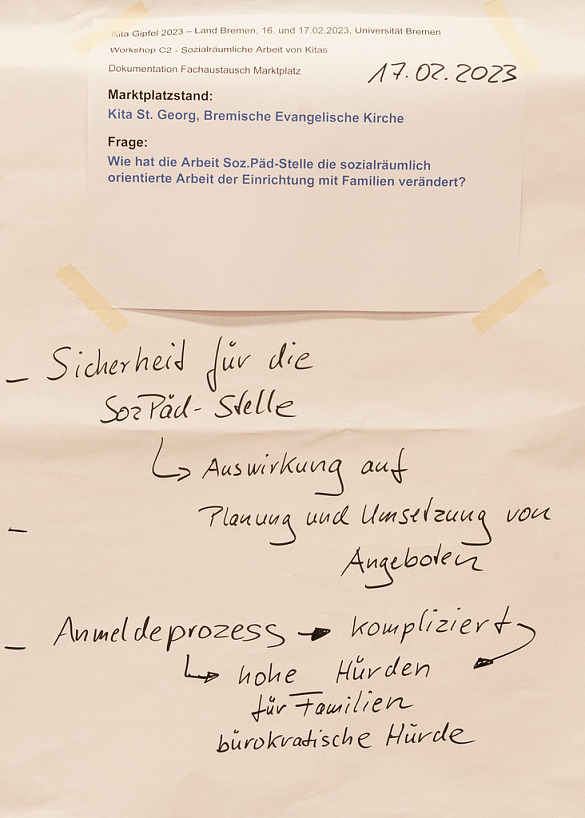 Kita Gipfel 2023 – Land Bremen, 16. und 17.02.2023, Universität Bremen
Workshop C2 - Sozialräumliche Arbeit von Kitas
Dokumentation Fachaustausch Marktplatz
17.02.2023
Marktplatzstand:
Kita St. Georg, Bremische Evangelische Kirche
Frage:
Wie hat die Arbeit Soz.Päd-Stelle die sozialräumlich
orientierte Arbeit der Einrichtung mit Familien verändert?
– Sicherheit für die
SozPäd-Stelle
↳ Auswirkung auf
– Planung und Umsetzung von
Angeboten
– Anmeldeprozess → kompliziert
↳ hohe Hürden
für Familien
bürokratische Hürde